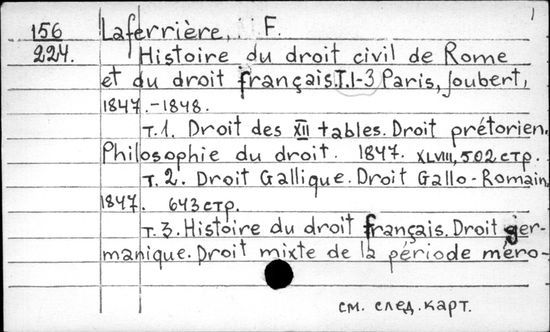 156 Laferrière, F. 1
224. Histoire du droit civil de Rome
et du droit français. T. 1-3 Paris, Joubert,
1847.-1848.
т. 1. Droit des XII tables. Droit prétorien.
Philosophie du droit. 1847. XLVIII, 502 стр.
т. 2. Droit Gallique. Droit Gallo-Romain
1847. 643 стр.
т. 3. Histoire du droit français. Droit ger-
manique. Droit mixte de la période méro-
см. след. карт.